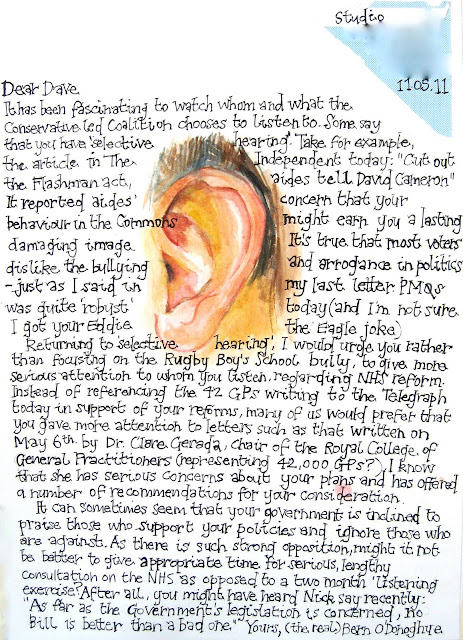 Studio
11.05.11
Dear Dave.
It has been fascinating to watch whom and what the
Conservative led Coalition chooses to listen to. Some say
that you have 'selective hearing'. Take for example,
the article in The Independent today: "Cut out
the Flashman act, aides tell David Cameron"
It reported aides' concern that your
behaviour in the Commons might earn you a lasting
damaging image. It's true that most voters
dislike the bullying and arrogance in politics
- just as I said in my last letter PMQs
was quite 'robust' today (and I'm not sure
I got your Eddie the Eagle joke)
Returning to selective hearing, I would urge you rather
than focusing on the Rugby Boy's School bully, to give more
serious attention to whom you listen, regarding NHS reform.
Instead of referencing the 42 GPs writing to the Telegraph
today in support of your reforms, many of us would prefer that
you gave more attention to letters such as that written on
May 6th. by Dr. Clare Gerada, Chair of the Royal College of
General Practitioners (representing 42,000 GPs?). I know
that she has serious concerns about your plans and has offered
a number of recommendations for your consideration.
It can sometimes seem that your government is inclined to
praise those who support your policies and ignore those who
are against. As there is such strong opposition, might it not
be better to give appropriate time for serious, lengthy
consultation on the NHS as opposed to a two month 'listening
exercise'? After all, you might have heard Nick say recently:
"As far as the Government's legislation is concerned, no
Bill is better than a bad one." Yours, (the real) Bern O'Donoghue.